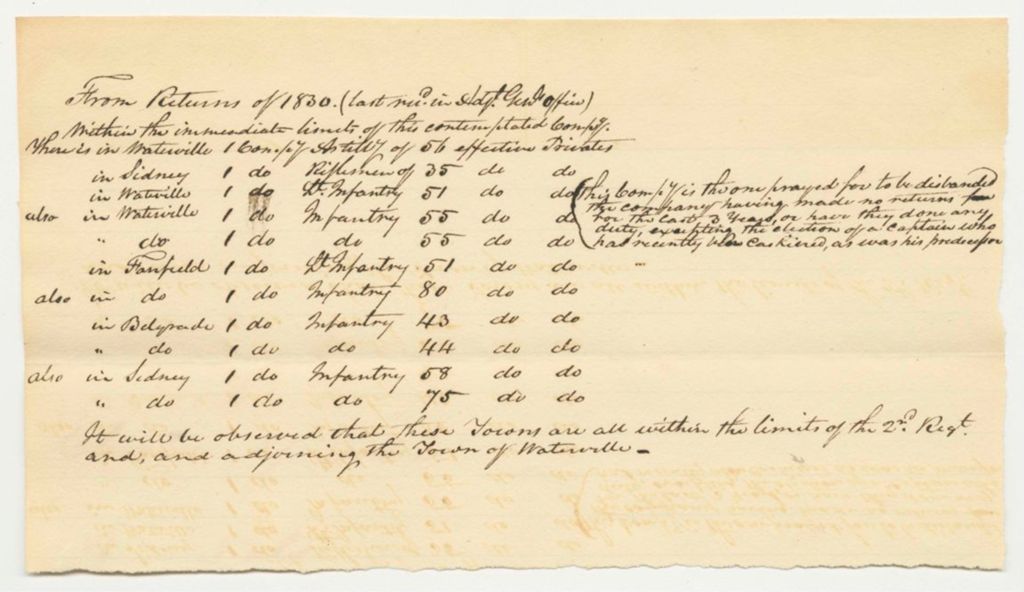 From Returns of 1830. (last rec'd in Adjt. Genl's Office)
Within the immediate limits of this contemplated Compy.
There is in Waterville 1 Compy Artilly of 56 effective Privates
in Sidney 1 do Riflemen of 35 do do
in Watville 1 do Lt. Infantry 51 do do (This Compy is the one prayed for to be disbanded
the company having made no returns
for the last 3 Years, or have they done any
duty, excepting the election of a Captain who
has recently been cashiered, as was his predecessor
also in Waterville 1 do Infantry 55 do do
" do 1 do do 55 do do
in Fairfield 1 do Lt Infantry 51 do do
also in do 1 do Infantry 80 do do
in Belgrade 1 do Infantry 43 do do
" do 1 do do 44 do do
also in Sidney 1 do Infantry 58 do do
" do 1 do do 75 do do
It will be observed that these Towns are all within the limits of the 2nd. Regt.
and, and adjoining the Town of Waterville -